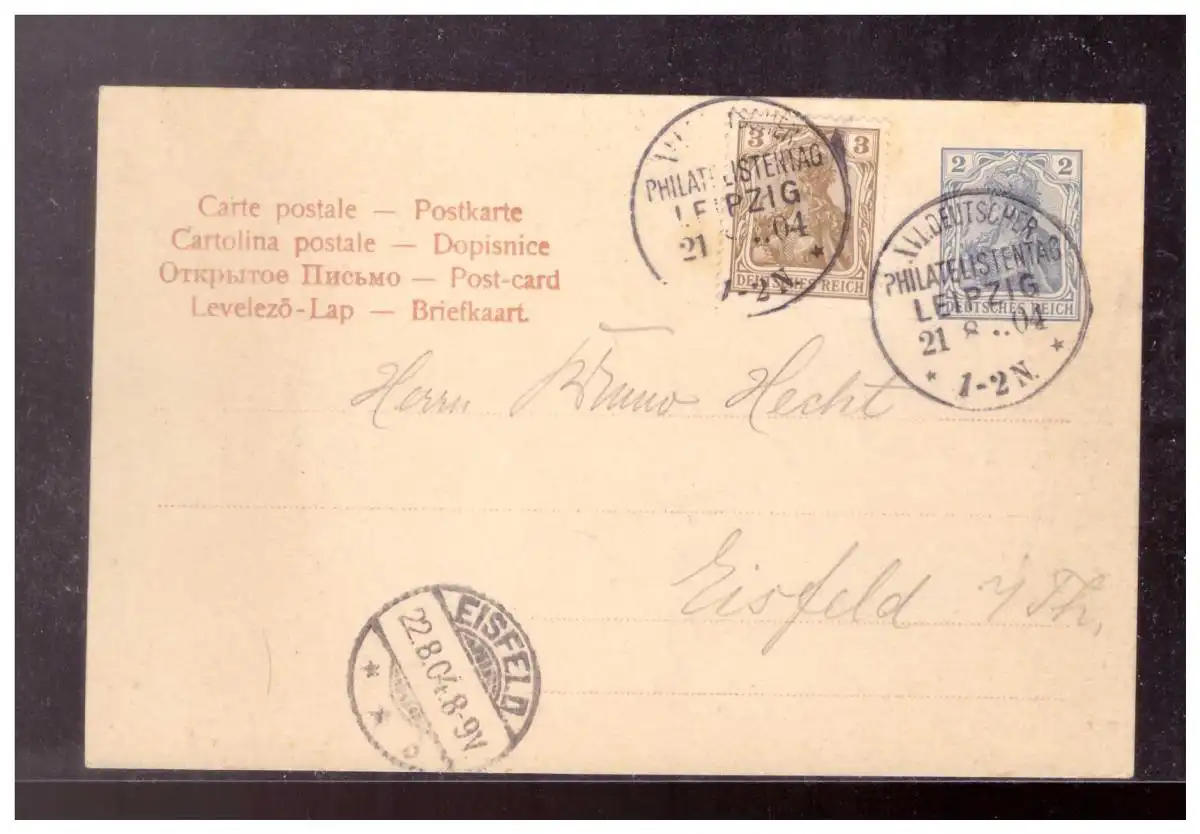 3 3
DEUTSCHES REICH
PHILATELISTENTAG
LEIPZIG
21 ..04
1-2 N.
2 2
DEUTSCHES REICH
DEUTSCHER
PHILATELISTENTAG
LEIPZIG
21 8 ..04
* 1-2 N. *
Carte postale — Postkarte
Cartolina postale — Dopisnice
Открытое Письмо — Post-card
Levelező-Lap — Briefkaart.
Herrn Bruno Hecht
Eisfeld i/Th.
EISFELD
22.8.04.8-9V
* *